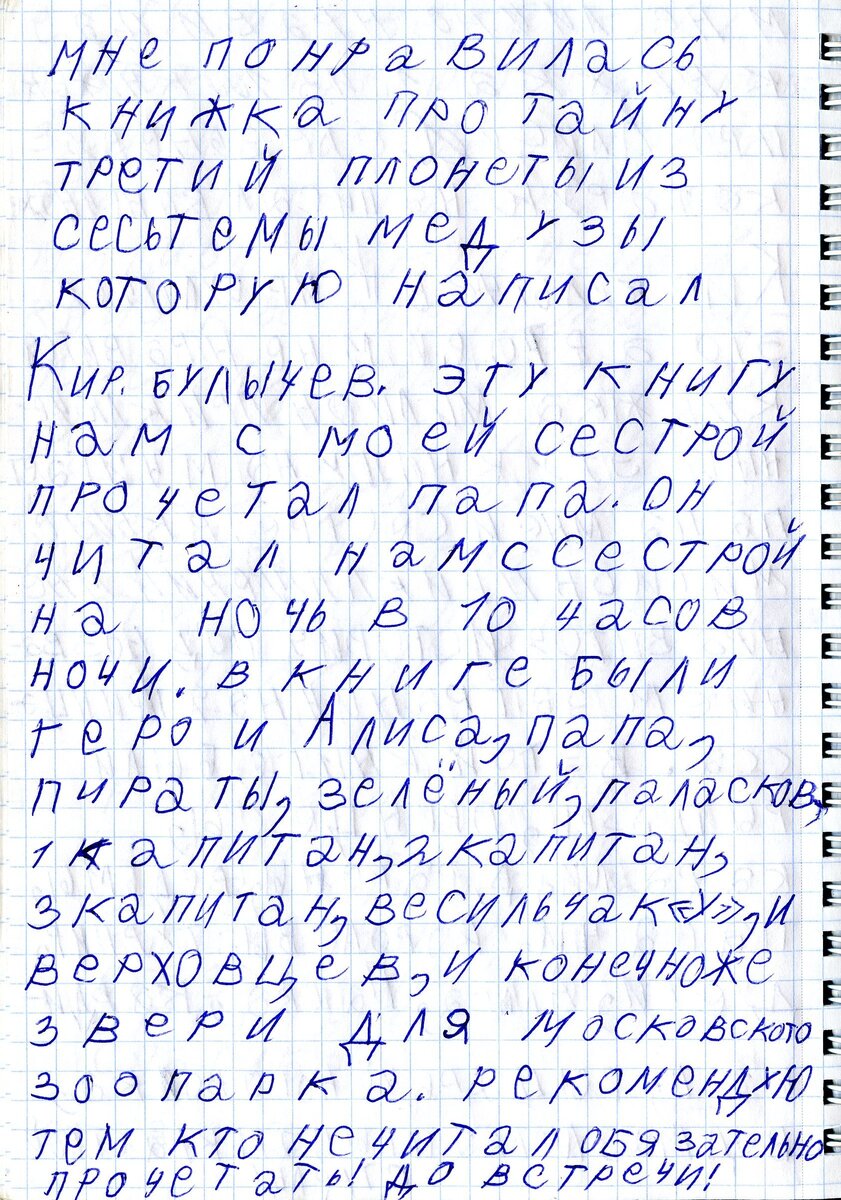 мне понравилась
книжка про тайну
третий плонеты из
сесьтемы медузы
которую написал
Кир. булычев. эту книгу
нам с моей сестрой
прочетал папа. он
читал нам с сестрой
на ночь в 10 часов
ночи. в книге были
герои Алиса, папа,
пираты, зелёный, паласков,
1 капитан, 2 капитан,
3 капитан, весильчак «У», и
верховцев, и конечноже
звери для московского
зоопарка. рекомендую
тем кто нечитал обязательно
прочетать! до встречи!